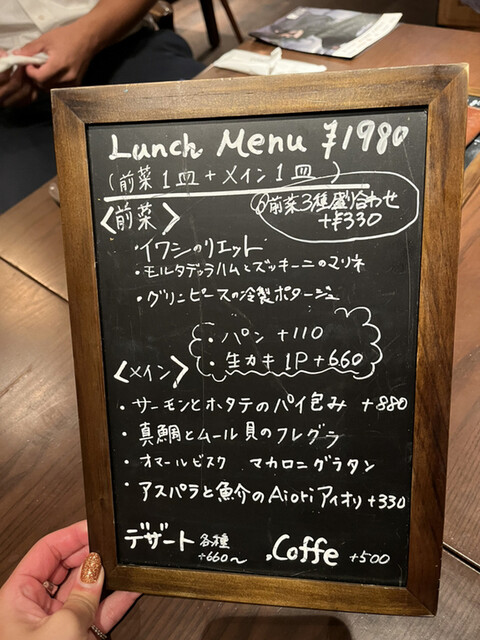 Lunch Menu ¥1980
(前菜1皿+メイン1皿)
前菜3種盛り合わせ
+¥330
<前菜>
・イワシのリエット
・モルタデッラハムとズッキーニのマリネ
・グリンピースの冷製ポタージュ
・パン +110
・生カキ 1P +660
<メイン>
・サーモンとホタテのパイ包み +880
・真鯛とムール貝のフレグラ
・オマールビスク マカロニグラタン
・アスパラと魚介のAioriアイオリ +330
デザート 各種
+660〜
Coffe +500